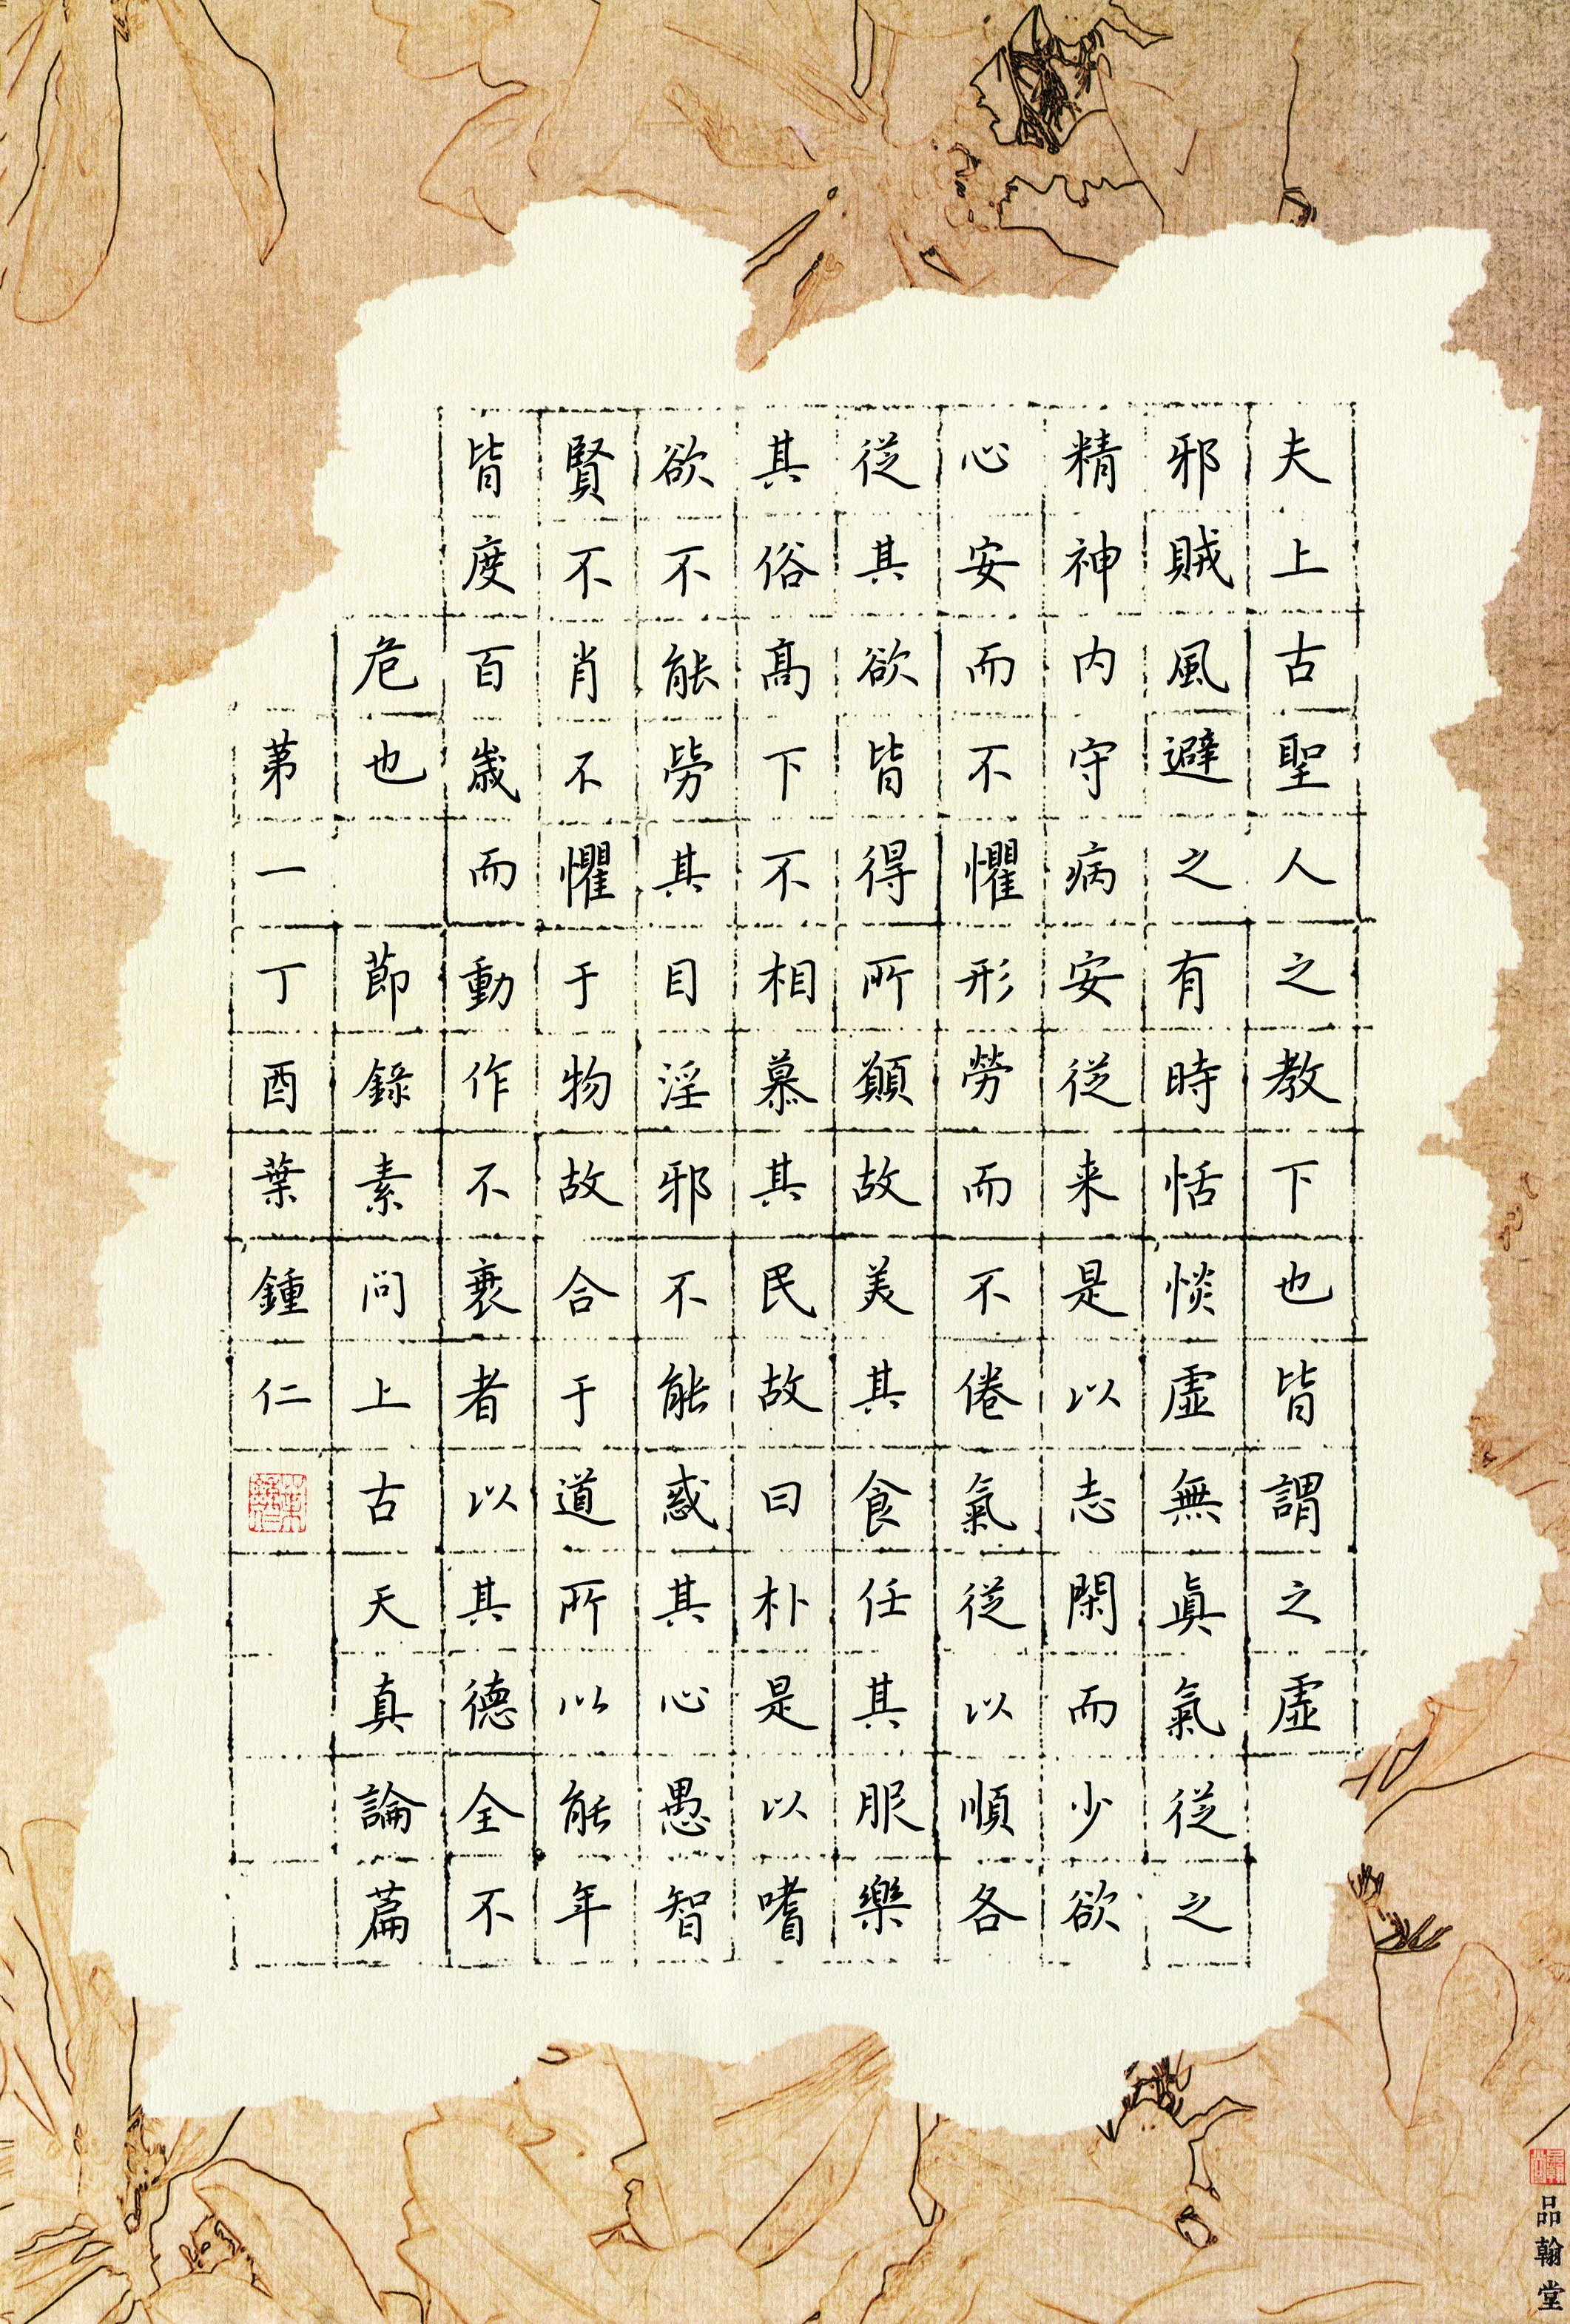 夫上古聖人之教下也皆謂之虛
邪賊風避之有時恬惔虛無眞氣從之
精神内守病安從来是以志閑而少欲
心安而不懼形勞而不倦氣從以順各
從其欲皆得所願故美其食任其服樂
其俗高下不相慕其民故曰朴是以嗜
欲不能勞其目淫邪不能惑其心愚智
賢不肖不懼于物故合于道所以能年
皆度百歲而動作不衰者以其德全不
危也
節錄素問上古天真論篇
苐一丁酉葉鍾仁
品翰堂